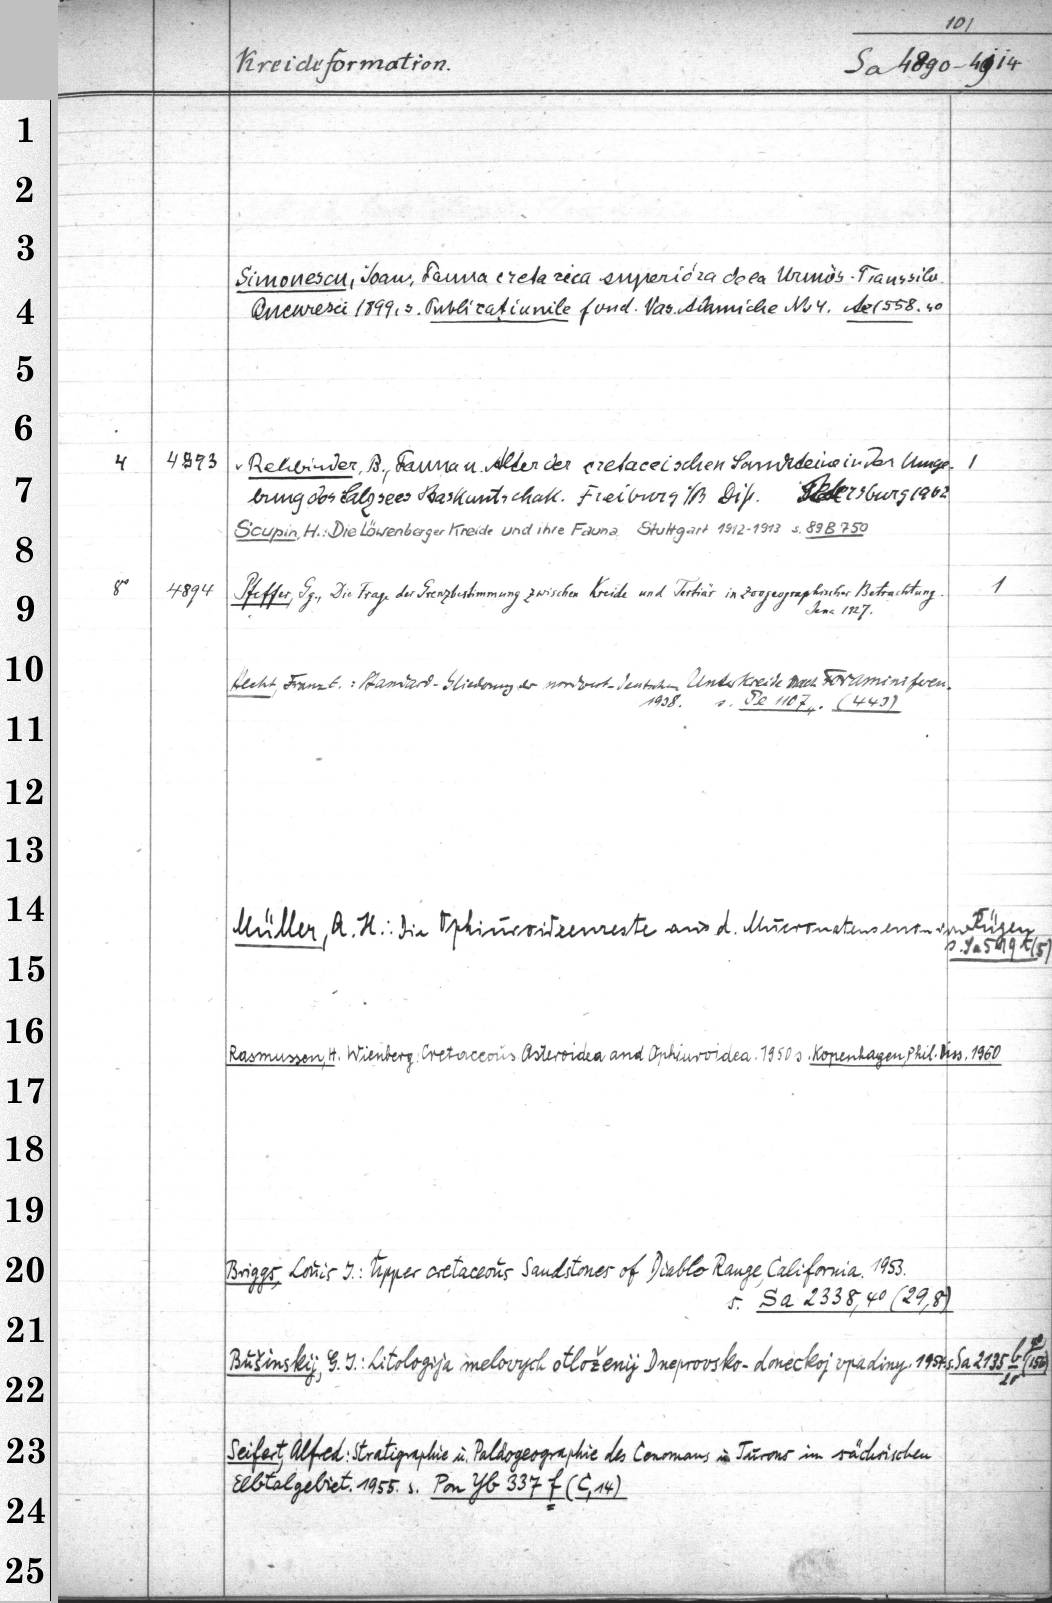 101
Kreideformation. Sa 4890-4914
1
2
3
Simonescu, Ioan, Fauna cretacica superióra dela Urmös-Transsilv.
4 Bucuresci 1899. s. Publicațiunile fond. Vas. Adamiche No 4. Ae 1558.40
5
6
4 4893 v Rehbinder, B., Fauna u. Alter der cretaceischen Sandsteine in der Umge- 1
7 bung des Salzsees Baskuntschak. Freiburg i/B Diss. Petersburg 1902
Scupin, H.: Die Löwenberger Kreide und ihre Fauna. Stuttgart 1912-1913 s. 89 B 750
8
8° 4894 Pfeffer, Gg., Die Frage der Grenzbestimmung zwischen Kreide und Tertiär in zoogeographischer Betrachtung. 1
9 Jena 1927.
10 Hecht, Franz E.: Standard-Gliederung der nordwest-deutschen Unterkreide nach Foraminiferen.
1938. s. Pe 1107,, . (443)
11
12
13
14 Müller, A. H.: Die Ophiuroidenreste aus d. Mucronatensenon von Rügen
15 s. (5)
16
Rasmussen, H. Wienberg: Cretaceous Asteroidea and Ophiuroidea. 1950 s. Kopenhagen, Phil. Diss. 1950
17
18
19
20 Briggs, Louis I.: Upper cretaceous Sandstones of Diablo Range, California. 1953.
s. Sa 2338,40 (29,8)
21
Bušinskij, G. I.: Litologija melovych otloženij Dneprovsko-doneckoj vpadiny. 1954. s. Sa 2135 (156)
22
23 Seifert, Alfred: Stratigraphie u. Paläogeographie des Cenomans u Turons im sächsischen
Elbtalgebiet. 1955. s. Pon Yb 337 f (C,14)
24
25